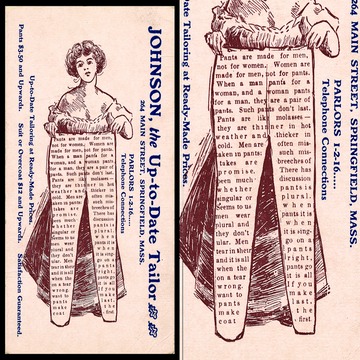 JOHNSON, the Up-to-Date Tailor
264 MAIN STREET, SPRINGFIELD, MASS.
PARLORS 1-2-16....
Telephone Connections
Up-to-Date Tailoring at Ready-Made Prices.
Pants $3.50 and Upwards. Suit or Overcoat $12 and Upwards. Satisfaction Guaranteed.
Pants are made for men,
not for women. Women are
made for men, not for pants.
When a man pants for a
woman, and a woman pants
for a man, they are a pair of
pants. Such pants don't last.
Pants are like molasses—
they are thinner in hot
weather and thicker in
cold. Men are often mis-
taken in pants; such mis-
takes are breeches of
promise. There has
been much discussion
whether pants is
singular or plural.
Seems to us when
men wear pants it is
plural and when
they don't it is sing-
ular. Men go on a
tear in their pants,
and it is all right,
when the pants go
on a tear it is all
wrong. If you
want to make
pants last,
make the
coat first.
264 MAIN STREET, SPRINGFIELD, MASS.
PARLORS 1-2-16....
Telephone Connections
Date Tailoring at Ready-Made Prices.
Pants are made for men,
not for women. Women are
made for men, not for pants.
When a man pants for a
woman, and a woman pants
for a man, they are a pair of
pants. Such pants don't last.
Pants are like molasses—
they are thinner in hot
weather and thicker in
cold. Men are often mis-
taken in pants; such mis-
takes are breeches of
promise. There has
been much discussion
whether pants is
singular or plural.
Seems to us when
men wear pants it is
plural and when
they don't it is sing-
ular. Men go on a
tear in their pants,
and it is all right,
when the pants go
on a tear it is all
wrong. If you
want to make
pants last,
make the
coat first.